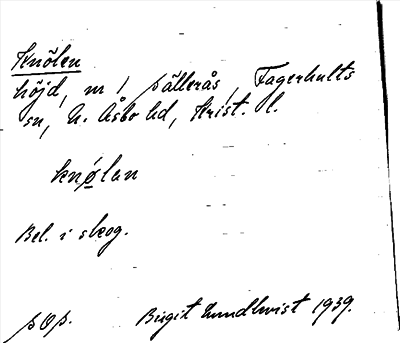 Knölen
höjd, m / Pällerås, Fagerhults
sn, N. Åsbo hd, Krist. l.
knǿ̱lan
Bel. i skog.
pOp. Birgit Lundkvist 1939.